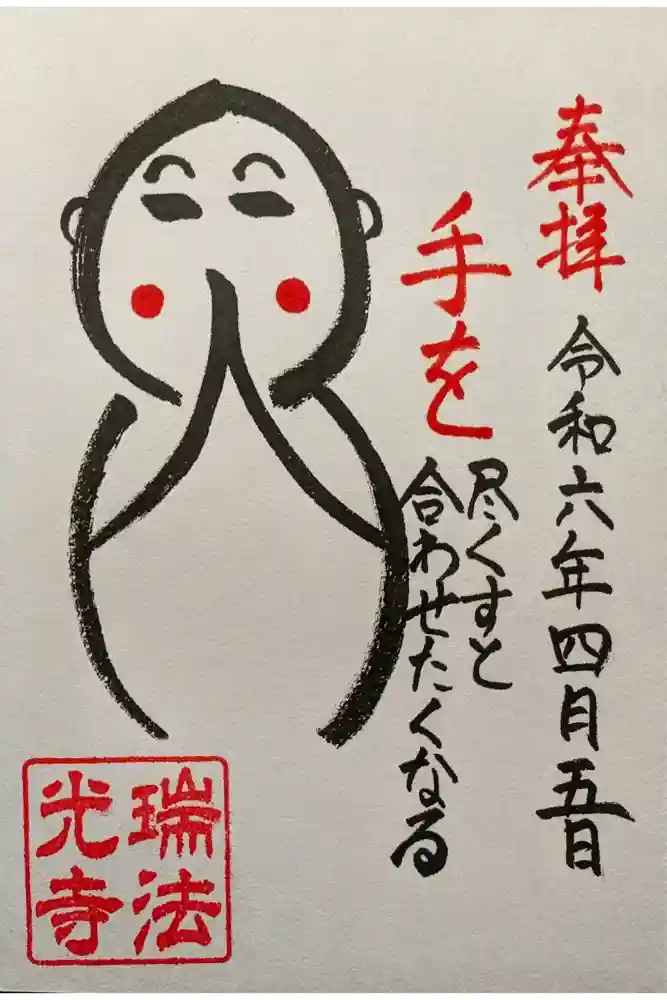 奉拝
令和六年四月五日
手を
尽くすと
合わせたくなる
瑞法
光寺